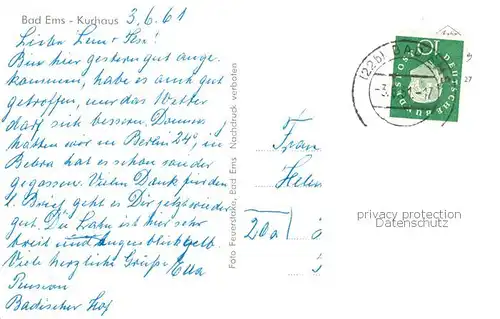 Bad Ems - Kurhaus
3.6.61
Lieber Leni + Ilse!
Bin hier gestern gut ange-
kommen, habe es auch gut
getroffen, nur das Wetter
darf sich bessern. Donners
hatten wir in Berlin 24°, in
Bebra hat es schon
gegossen. Vielen Dank für den
l. Brief geht es Dir jetzt wieder
gut. Die Lahn ist hier sehr
breit und augenblickl. gelb.
Viele herzliche Grüße Ella
Pension
Badischer Hof
Foto Feuerstake, Bad Ems Nachdruck verboten
Frau
Helen
20a
(22b) BAD
-3.
-17
10
DEUTSCHE BUNDESPOST
27
privacy protection
Datenschutz